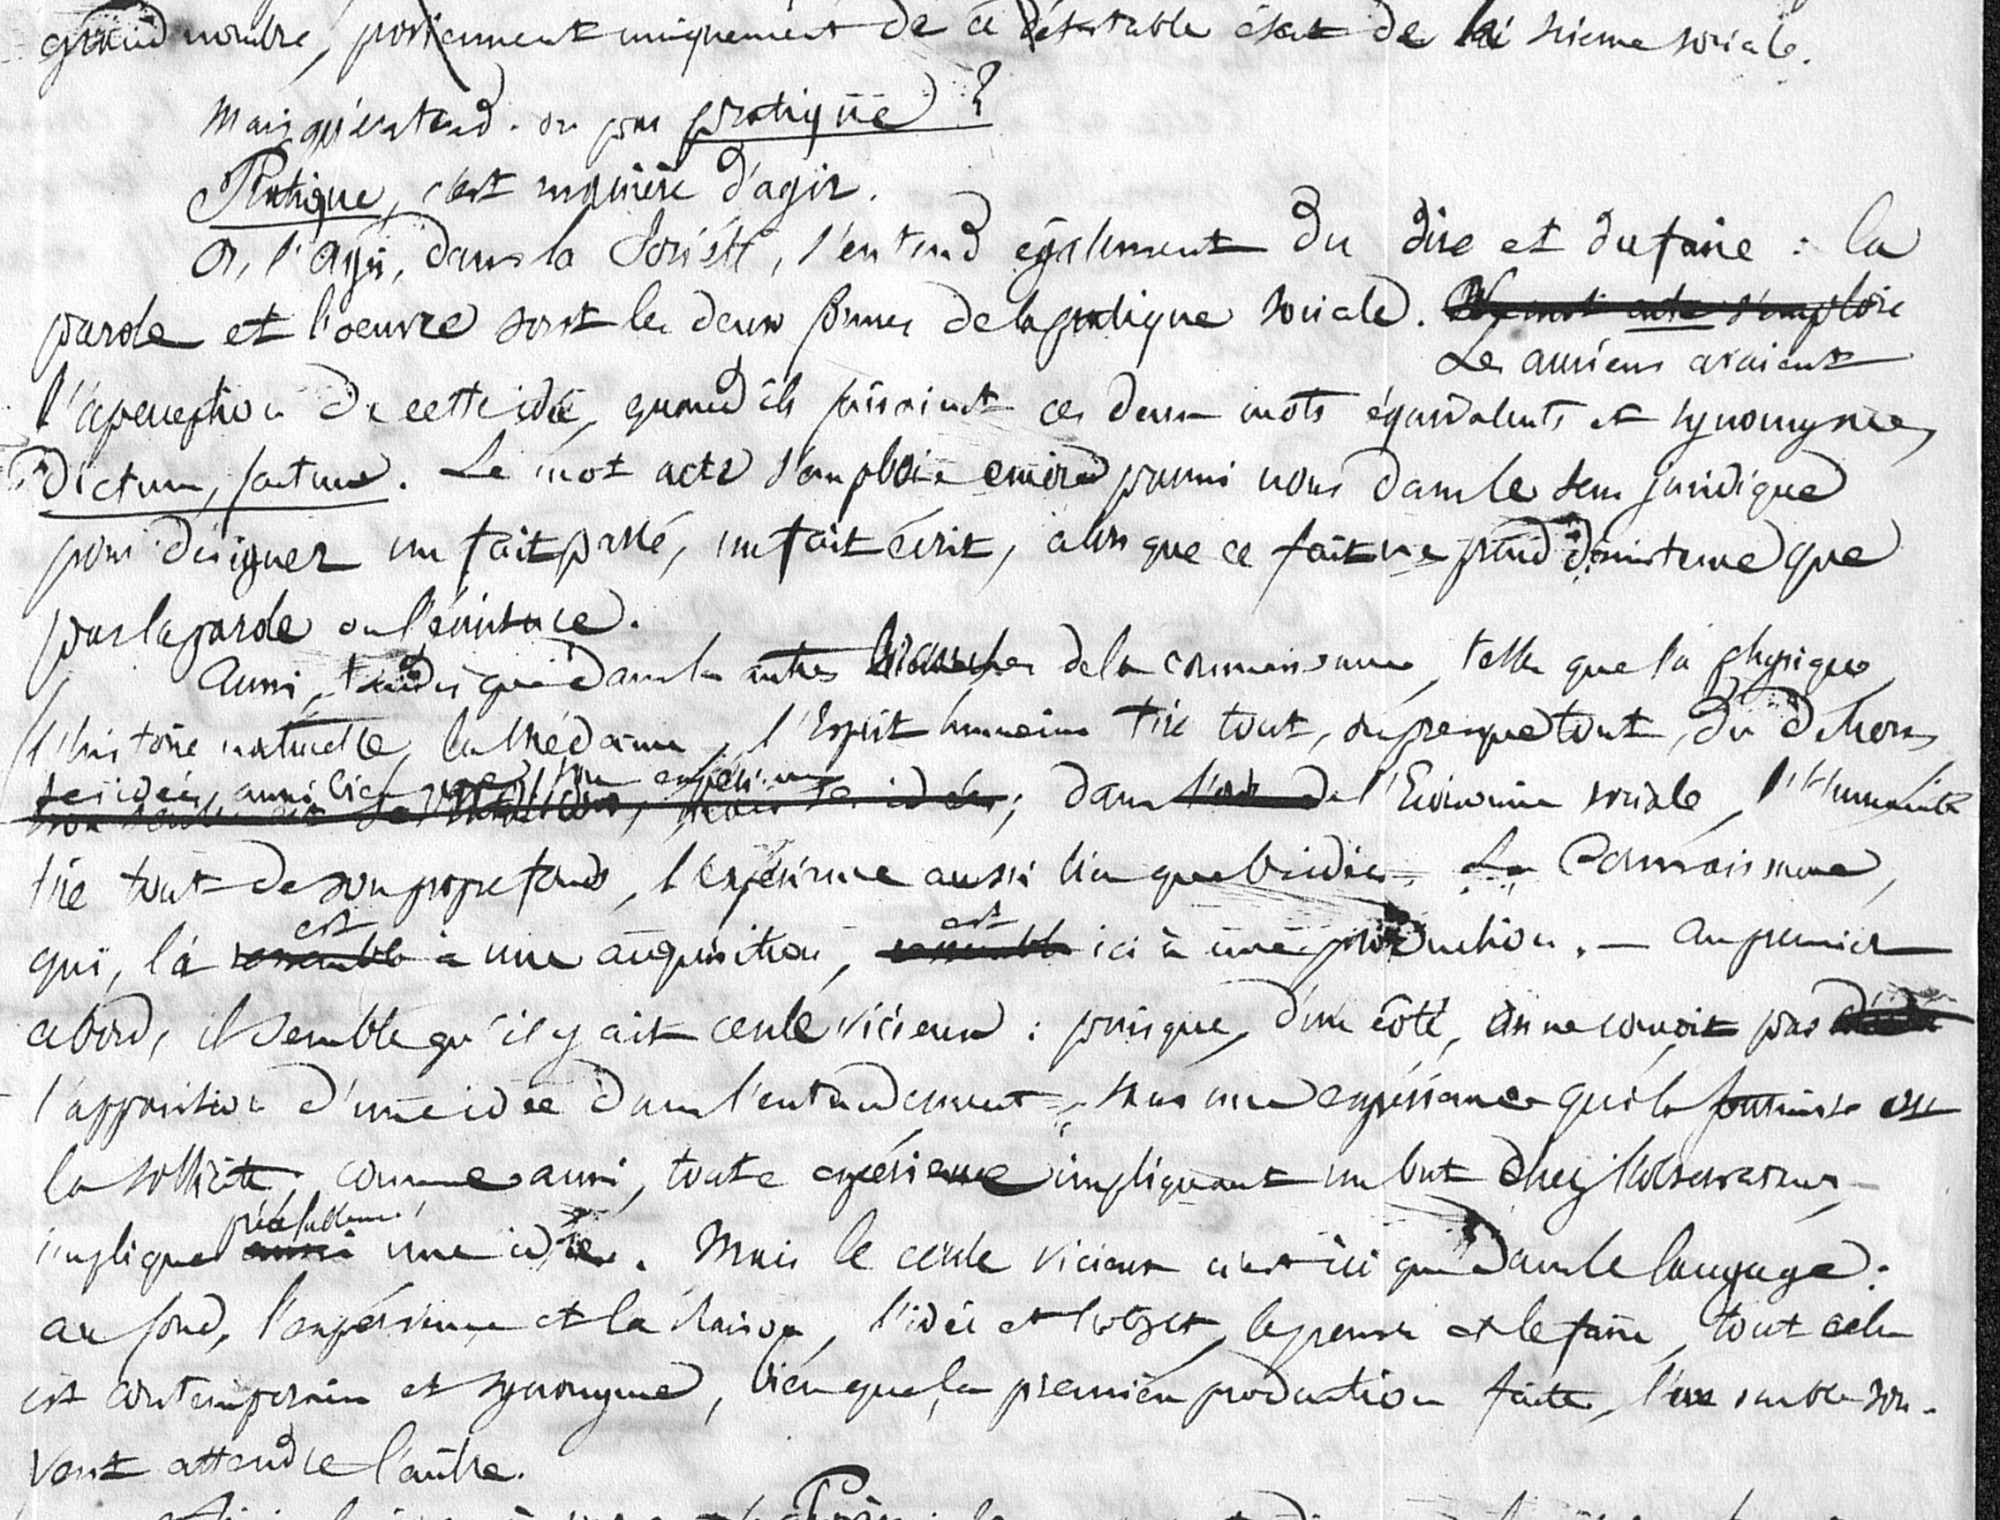 grand nombre, proviennent uniquement de ce détestable état de la science sociale.
Mais qu'entend-on par pratique ?
Pratique, c'est manière d'agir.
Or, l'agir, dans la Société, s'entend également du dire et du faire : la
parole et l'oeuvre sont les deux formes de la pratique sociale. Le mot acte s'emploie
Les anciens avaient
l'aperception de cette idée, quand ils faisaient ces deux mots équivalents et synonymes,
dictum, factum. Le mot acte s'emploie encore parmi nous dans le sens juridique
pour désigner un fait passé, un fait écrit, alors que ce fait ne prend d'existence que
par la parole ou l'écriture.
Aussi, tandis que dans les autres branches de la connaissance, telles que la physique,
l'histoire naturelle, la médecine, l'Esprit humain tire tout, ou presque tout, du dehors
ses idées aussi bien que son expérience
ses idées; dans de l'Economie sociale, l'Humanité
tire tout de son propre fonds, l'expérience aussi bien que les idées. La Connaissance,
est est
qui, là ressemble à une acquisition, ressemble ici à une production. — Au premier
abord, il semble qu'il y ait cercle vicieux : puisque, d'un côté, on ne conçoit pas
l'apparition d'une idée dans l'entendement, sans une expérience qui la fournisse ou
la sollicite, comme aussi, toute expérience impliquant un but chez l'observateur,
préalablement
implique aussi une idée. Mais le cercle vicieux n'est ici que dans le langage :
au fond, l'expérience et la raison, l'idée et l'objet, le penser et le faire, tout cela
est contemporain et synonyme, bien que, la première production faite, l'une semble sou-
vent attendre l'autre.